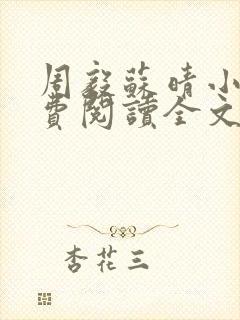 周毅蘇晴小
費閱讀全文
杏花三